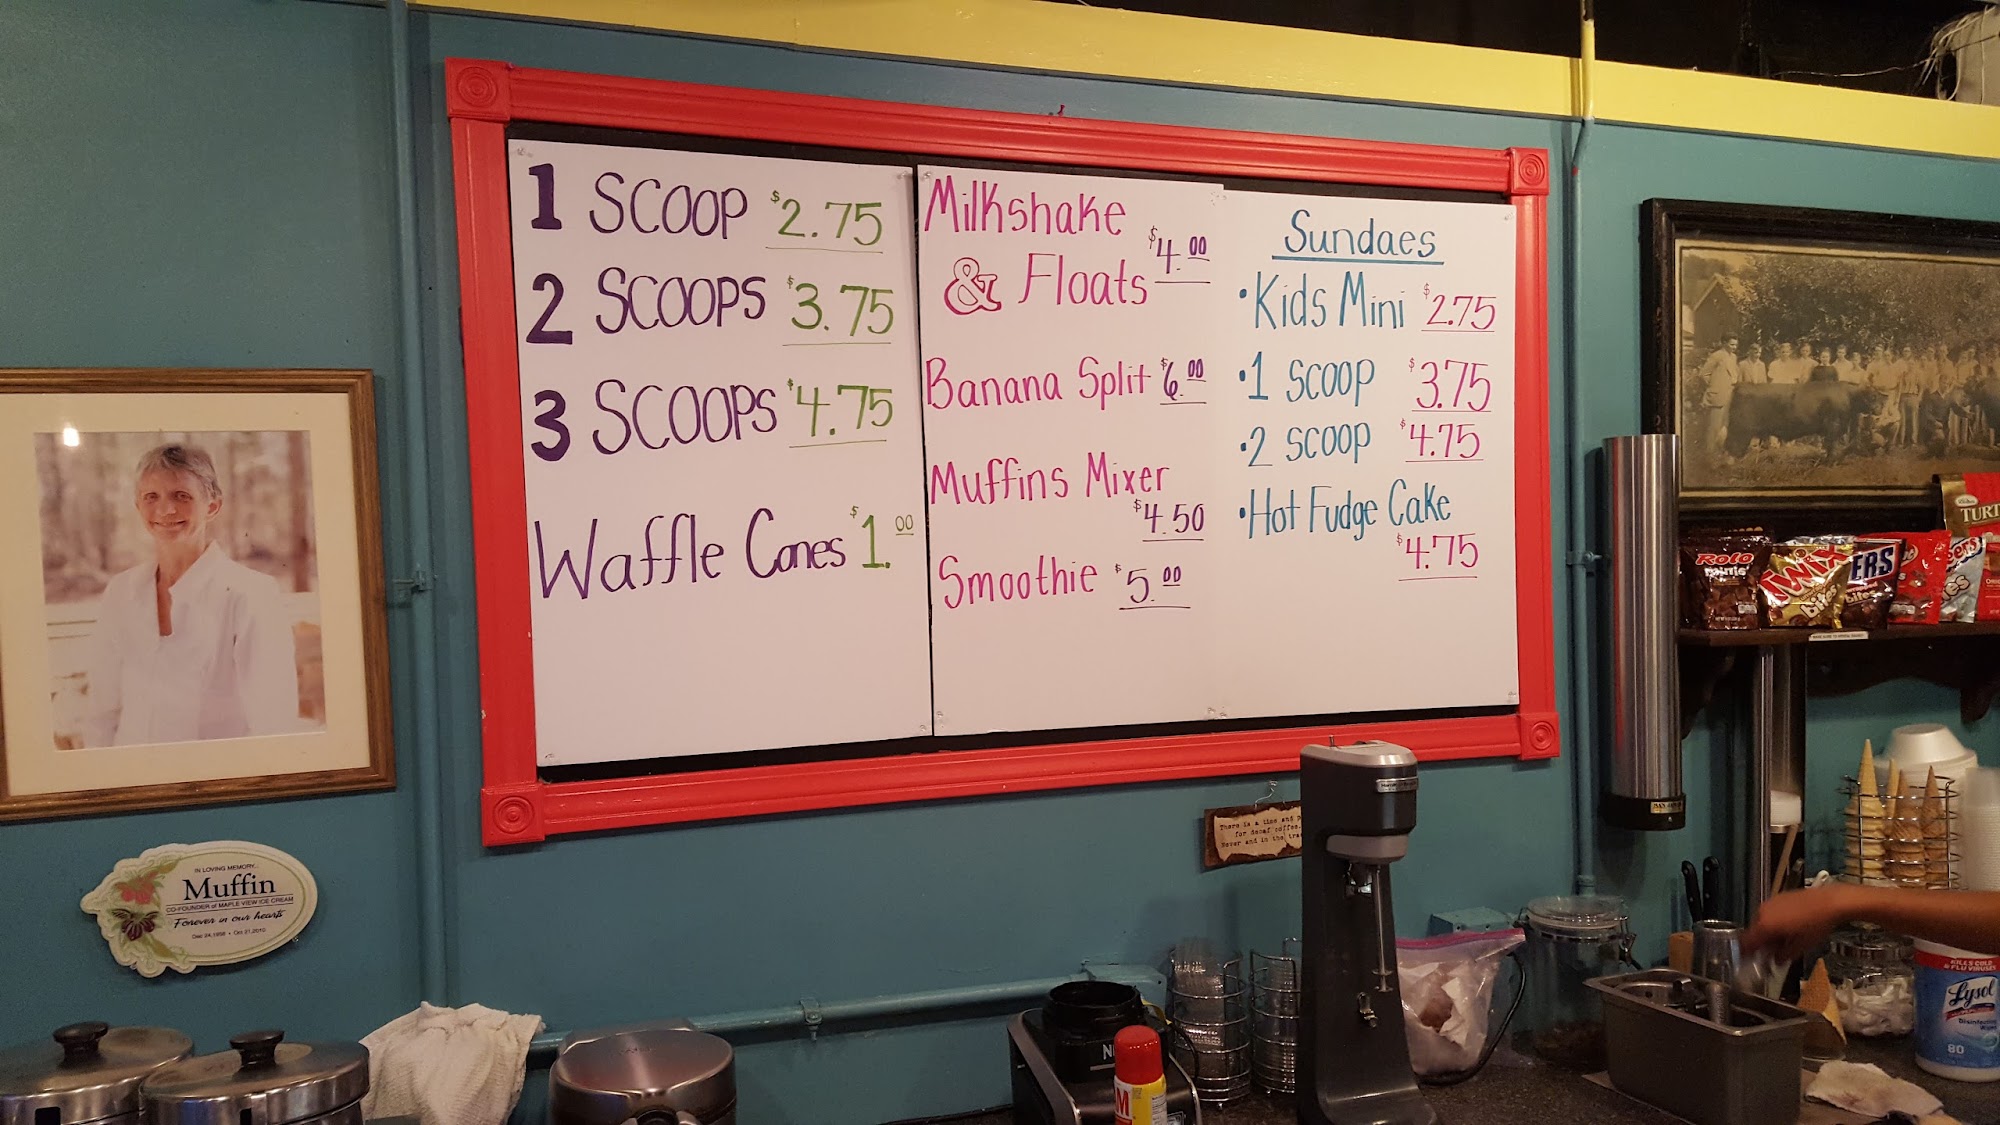 1 SCOOP $2.75
2 SCOOPS $3.75
3 SCOOPS $4.75
Waffle Cones $1.00
Milkshake
& Floats $4.00
Banana Split $6.00
Muffins Mixer
$4.50
Smoothie $5.00
Sundaes
•Kids Mini $2.75
•1 scoop $3.75
•2 scoop $4.75
•Hot Fudge Cake
$4.75
IN LOVING MEMORY...
Muffin
CO-FOUNDER of MAPLE VIEW ICE CREAM
Forever in our hearts
There is a time and
for decaf coffee.
Never and in the
ROLO
minis
TWIX
bites
ERS
bites
TURT
KILLS COLD
& FLU VIRUSES
Lysol
Disinfecting
Wipes
80